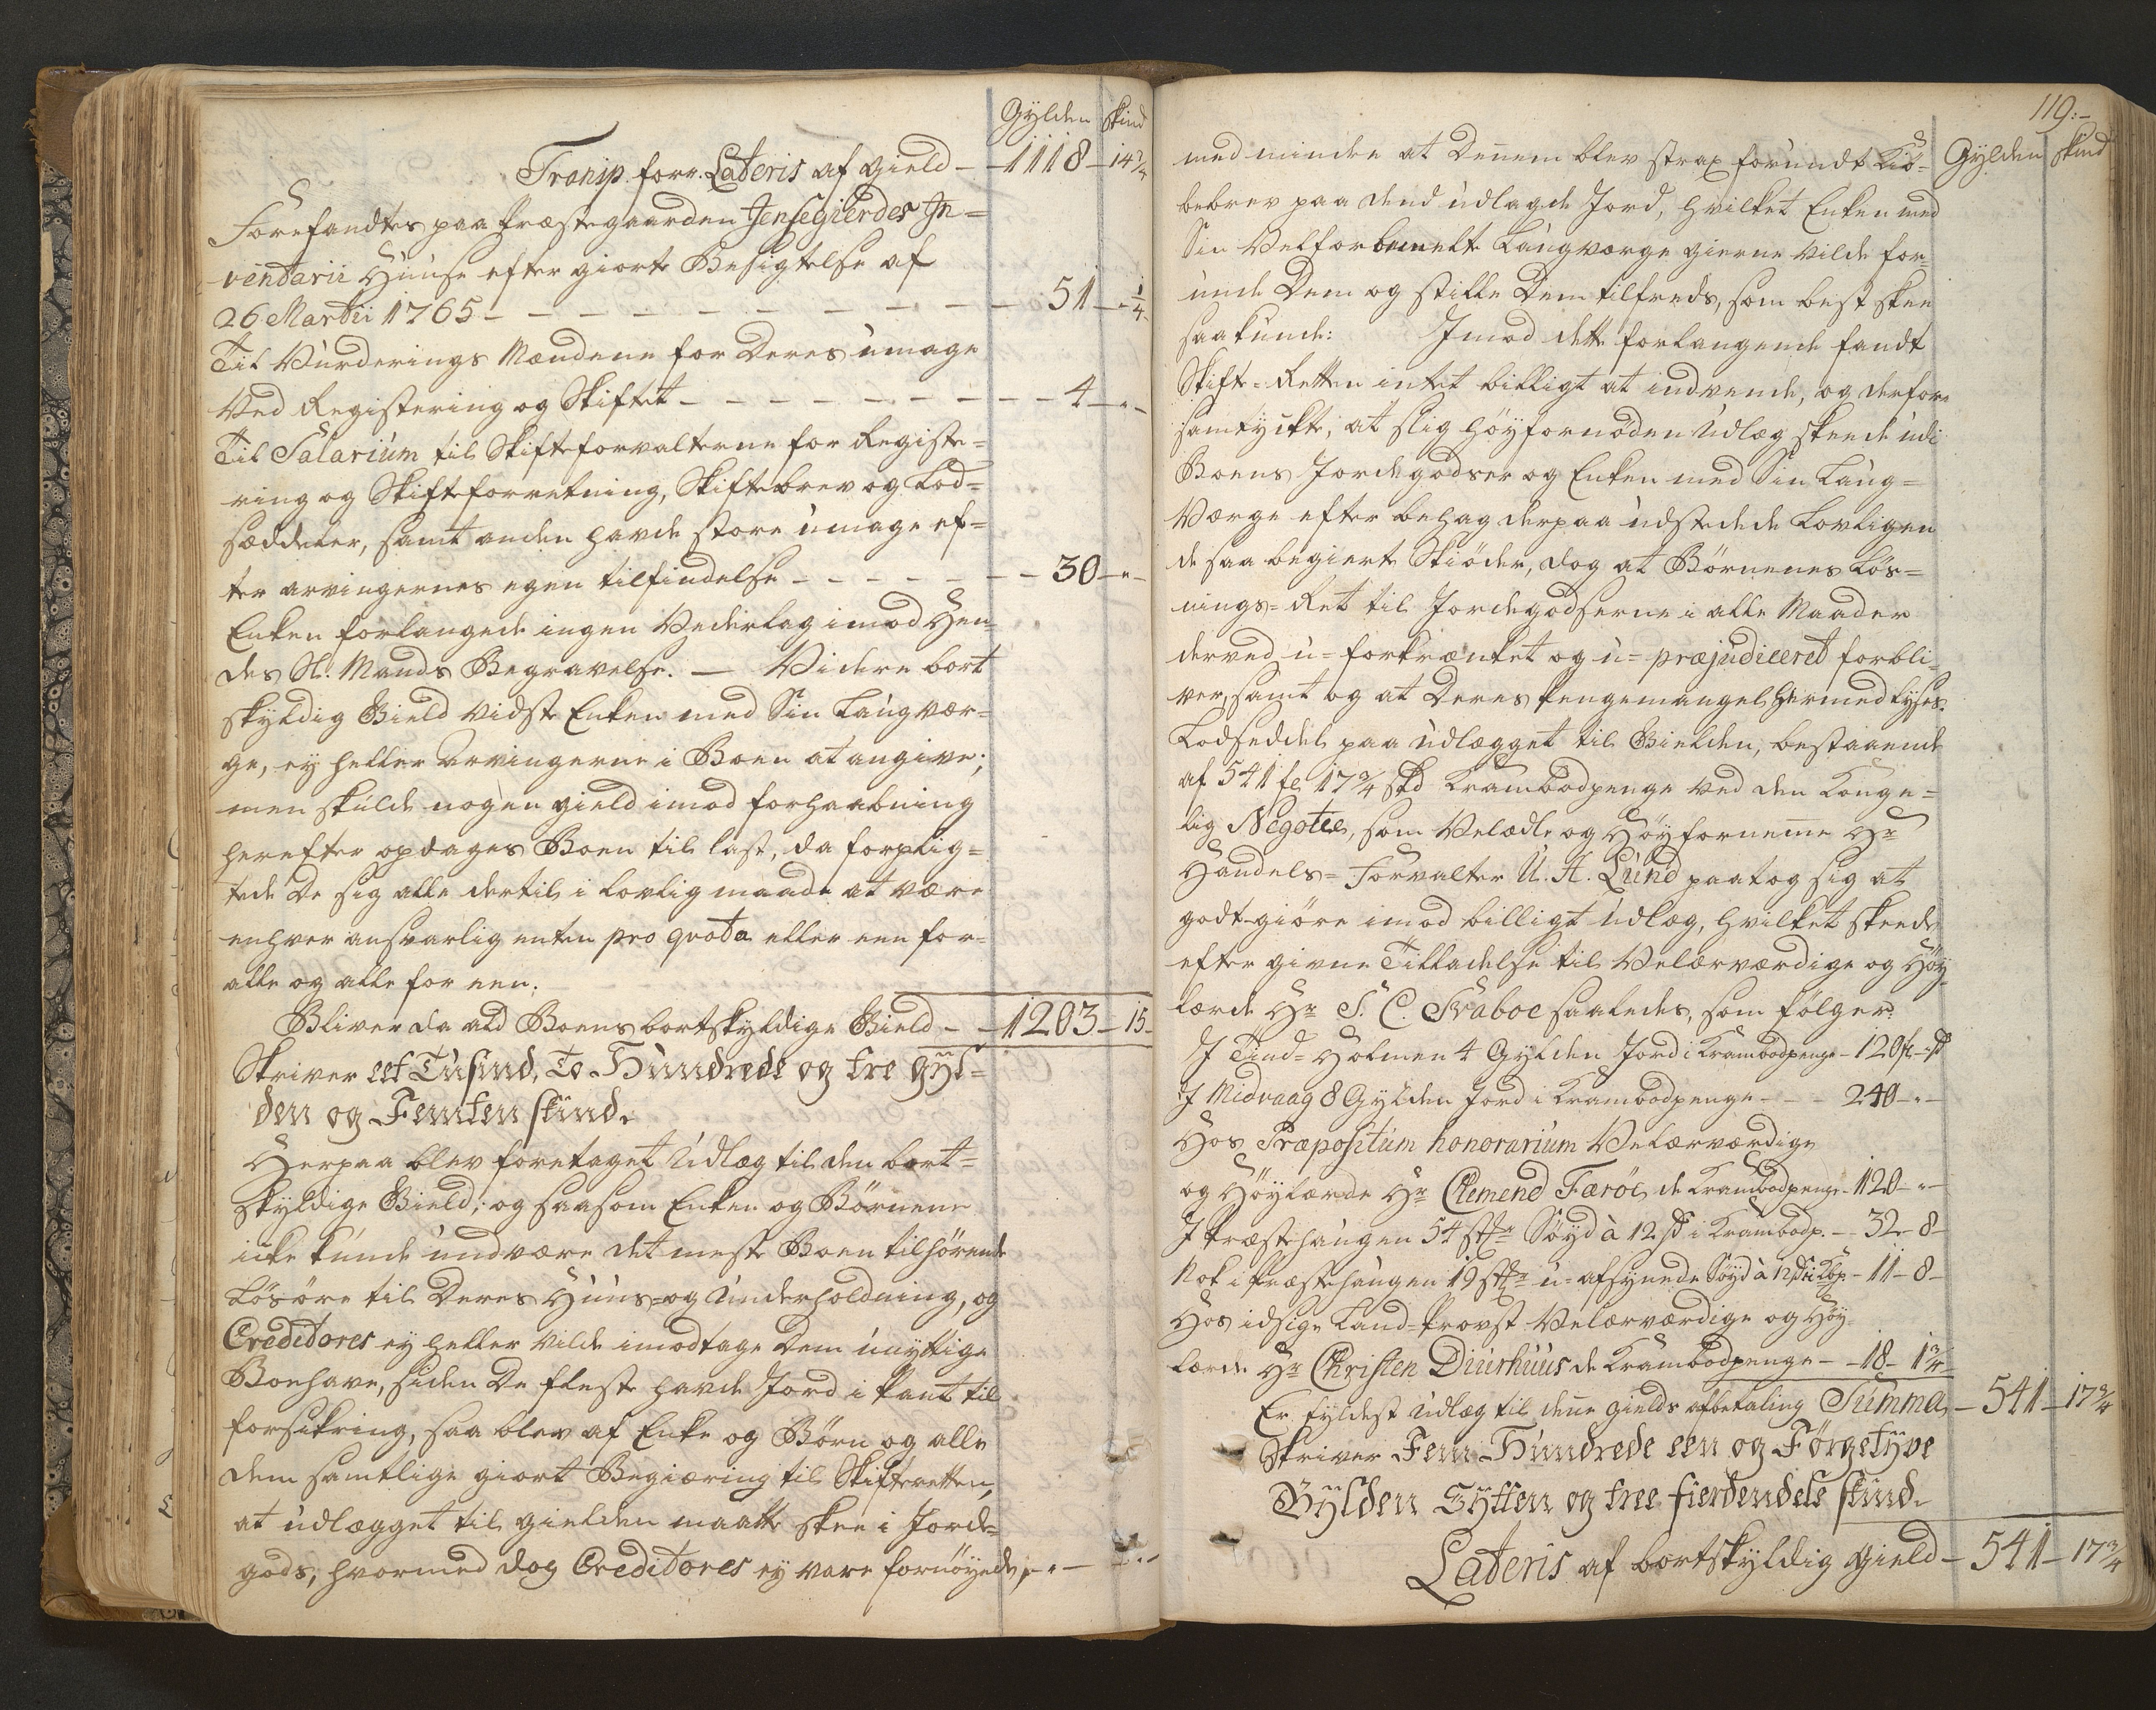 Gylden Skind
Transp. forr. Lateris af Gield – 1118 – 14 3/4
Forefandtes paa Præstegaarden Jensegierdes In=
ventarii Huuse efter giorte Besigtelse af
26 Martii 1765 – – – – – – – – – 51 – 1/4
Til Vurderings Mændene for Deres umage
Ved Registering og Skiftet – – – – – – – 4 – " –
Til Salarium til Skifteforvalterne for Registe=
ring og Skifteforretning, Skiftebrev og Lod=
sæddeler, samt anden havde store umage ef=
ter arvingernes egen tilfindelse – – – – – 30 – " –
Enken forlangede ingen Vederlag imod Hen=
des Sl. Mands Begravelse. – Videre bort
skyldig Gield vidste Enken med Sin Laugvær=
ge, ey heller Arvingerne i Boen at angive;
men skulde nogen gield imod forhaabning
herefter opdages Boen til last, da forplig=
tede De sig alle dertil i lovlig maade at være
enhver ansvarlig enten pro qvota eller een for
alle og alle for een.
Bliver da ald Boens bortskyldige Gield – – 1203 – 15 –
Skriver eet Tusind, To Hundrede og tre gyl=
den og Femten skind.
Herpaa blev foretaget Udlæg til den bort=
skyldige Gield; og saasom Enken og Børnene
icke kunde undvære det meste Boen tilhørende
Løsøre til Deres Huus- og Underholdning, og
Creditores ey heller vilde imodtage Dem unyttige
Boehave, siden De fleste havde Jord i Pant til
forsikring, saa blev af Enke og Børn og alle
dem samtlige giort Begiæring til Skifteretten,
at udlægget til gielden maatte skee i Jorde=
gods, hvormed dog Creditores ey vare fornøyede,
119.–
Gylden Skind
med minder at Dennem blev strax forundt Kiø=
bebrev paa dend udlagde Jord, hvilket Enken med
Sin Velforbemelte Laugværge gierne vilde for=
unde Dem og stille Dem tilfreds, som best skee
saa kunde: Imod dette forlangende fandt
Skifte=Retten intet billigt at indvende, og derfore
samtyckte, at slig høyfornøden Udlæg skeede udi
Boens Jordegodser og Enken med Sin Laug=
Værge efter behag derpaa udstedede Lovligen
de saa begierte Skiøder, dog at Børnenes Løs=
nings=Ret til Jordegodserne i alle Maader
derved u=forkrænket og u=præjudiceret forbli=
ver, samt og at Deres pengemangel hermed lyses.
Lodseddel paa udlægget til Gielden, bestaaende
af 541 fl 17 3/4 skd Krambodpenge ved den Konge=
lig Negotie, som Velædle og Høyforneme Hr
Handels=Forvalter U. A. Lund paatog sig at
godtgiøre imod billigt udlæg, hvilket skeede
efter given Tilladelse til Velærværdige og Høy
lærde Hr S. C. Svaboe saaledes, som følger.
I Tind=Holmen 4 Gylden Jord i Krambodpenge – 120 fl – " sd
I Midvaag 8 Gylden Jord i Krambodpenge – – – 240 – " –
Hos Præpositum honorarium Velærværdige
og Høylærde Hr Clemend Færöe de Krambodpenge – 120 – " –
I Præstehaugen 54 st: Søyd à 12 sd i Krambodp. – 32 – 8 –
Nok i Præstehaugen 19 st: u-afsynede Søyd à 12 sd i Kbp – 11 – 8 –
Hos idsige Land=Provst Velærværdige og Høy
lærde Hr Christen Diurhuus de Krambodpenge – – 18 – 1 3/4
Er fyldest udlæg til denne gields afbetaling Summa – 541 – 17 3/4
Skriver Fem Hundrede een og Førgetyve
Gylden Sytten og tree fierdendele skind.
Lateris af bortskyldig gield – 541 – 17 3/4